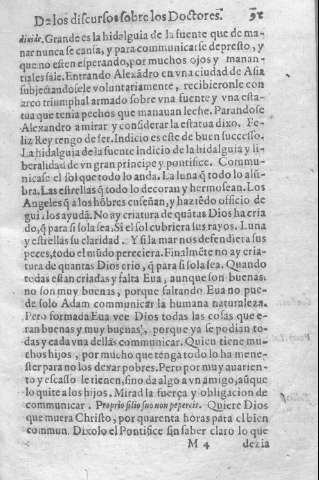 De los discursos sobre los Doctores.
diuide. Grande es la hidalguia de la fuente que de ma-
nar nunca se cansa, y para communicarse depresto, y
que no esten esperando, por muchos ojos y manan-
tiales sale. Entrando Alexãdro en vna ciudad de Asia
subjectandosele voluntariamente, recibieronle con
arco triumphal armado sobre vna fuente y vna esta-
tua que tenia pechos que manauan leche. Parandose
Alexandro a mirar y considerar la estatua dixo. Fe-
liz Rey tengo de ser. Indicio es este de buen successo.
La hidalguia de la fuente indicio de la hidalguia y li-
beralidad de vn gran principe y pontifice. Commu-
nicase el sol que todo lo anda. La luna q̃ todo lo alũ-
bra. Las estrellas q̃ todo lo decoran y hermosean. Los
Angeles q̃ a los hõbres enseñan, y haziẽdo officio de
guia los ayudã. No ay criatura de quãtas Dios ha cria
do, q̃ para si sola sea. Si el sol cubriera sus rayos. Luna
y estrellas su claridad. Y si la mar nos defendiera sus
peces, todo el mũdo pereciera. Finalmẽte no ay cria-
tura de quantas Dios crio, q̃ para si sola sea. Quando
todas estan criadas y falta Eua, aunque son buenas.
no son muy buenas, porque faltando Eua no pue-
de solo Adam communicar la humana naturaleza.
Pero formada Eua vee Dios todas las cosas que e-
ran buenas y muy buenas, porque ya se podian to-
das y cada vna dellas communicar. Quien tiene mu-
chos hijos, por mucho que tẽga todo lo ha mene-
ster para no los dexar pobres. Pero por muy auarien-
to y escasso le tienen, sino da algo a vn amigo, aũque
lo quite a los hijos. Mirad la fuerça y obligacion de
communicar. Proprio filio suo non pepercit. Quiere Dios
que muera Christo, por quarenta horas para el bien
commun. Dixolo el Pontifice sin saber claro lo que
M 4 dezia